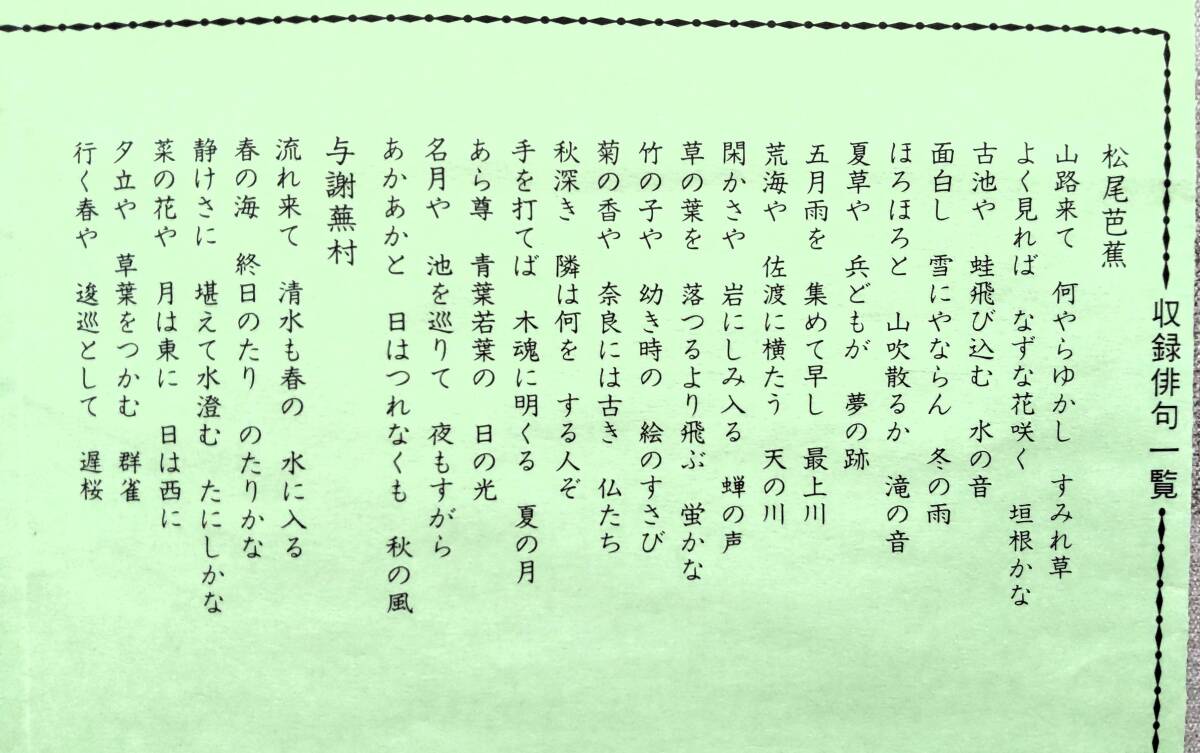 収録俳句一覧
松尾芭蕉
山路来て 何やらゆかし すみれ草
よく見れば なずな花咲く 垣根かな
古池や 蛙飛び込む 水の音
面白し 雪にやならん 冬の雨
ほろほろと 山吹散るか 滝の音
夏草や 兵どもが 夢の跡
五月雨を 集めて早し 最上川
荒海や 佐渡に横たう 天の川
閑かさや 岩にしみ入る 蝉の声
草の葉を 落つるより飛ぶ 蛍かな
竹の子や 幼き時の 絵のすさび
菊の香や 奈良には古き 仏たち
秋深き 隣は何を する人ぞ
手を打てば 木魂に明くる 夏の月
あら尊 青葉若葉の 日の光
名月や 池を巡りて 夜もすがら
あかあかと 日はつれなくも 秋の風
与謝蕪村
流れ来て 清水も春の 水に入る
春の海 終日のたり のたりかな
静けさに 堪えて水澄む たにしかな
菜の花や 月は東に 日は西に
夕立や 草葉をつかむ 群雀
行く春や 逡巡として 遅桜